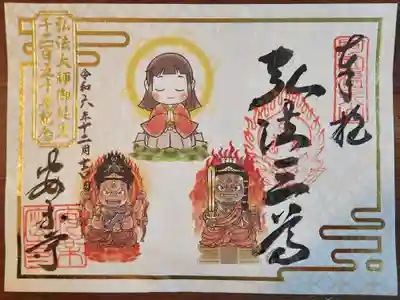 奉拝
弘法三尊
令和六年十二月
弘法大師御誕生
千二百五十年記念